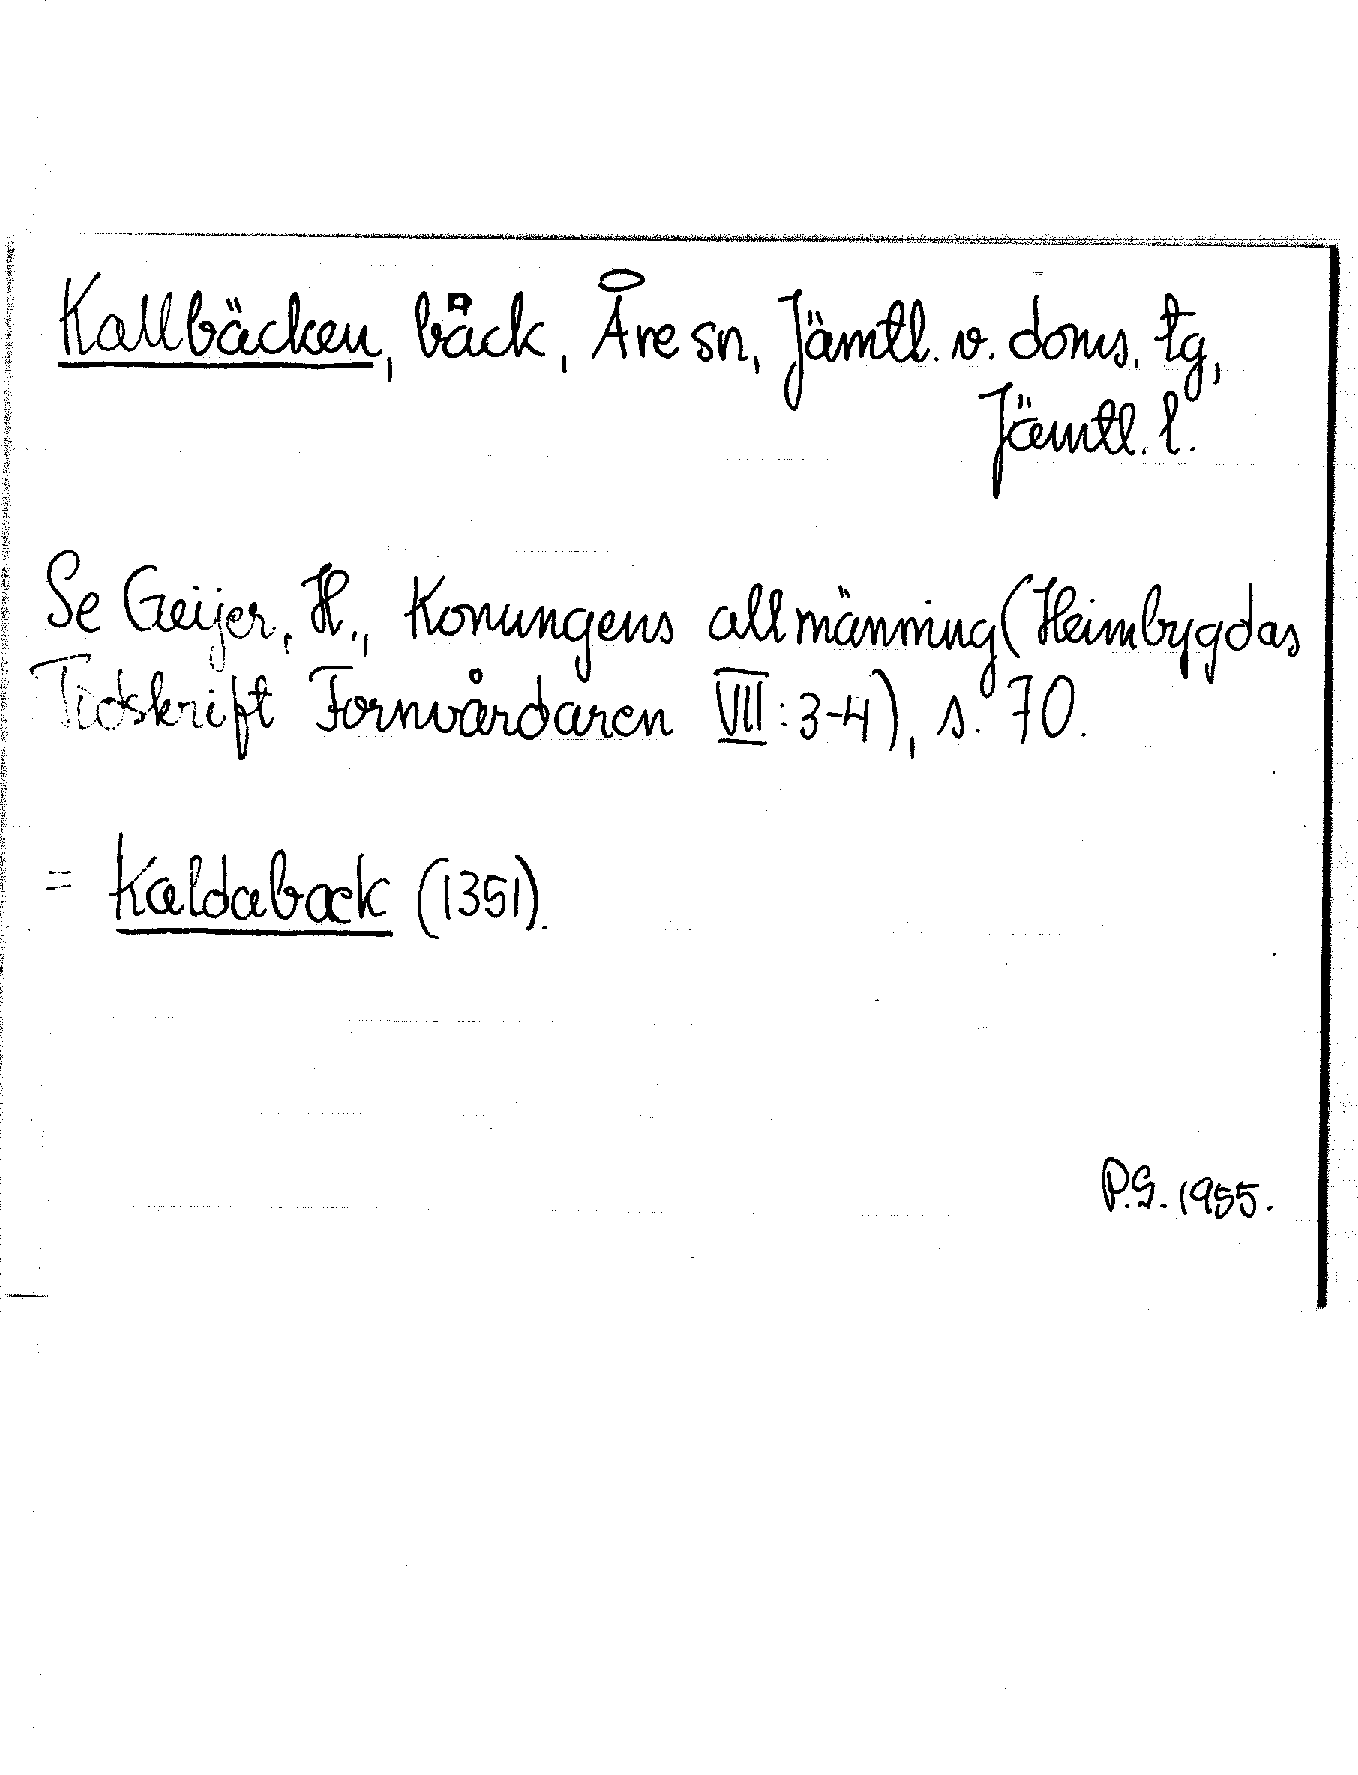 Kallbäcken, bäck, Åre sn, Jämtl. v. doms. tg,
Jämtl. l.
Se Geijer, H., Konungens allmänning (Heimbygdas
Tidskrift Fornvårdaren VIII:3-4), s. 70.
= Kaldaback (1351).
P.G. 1955.